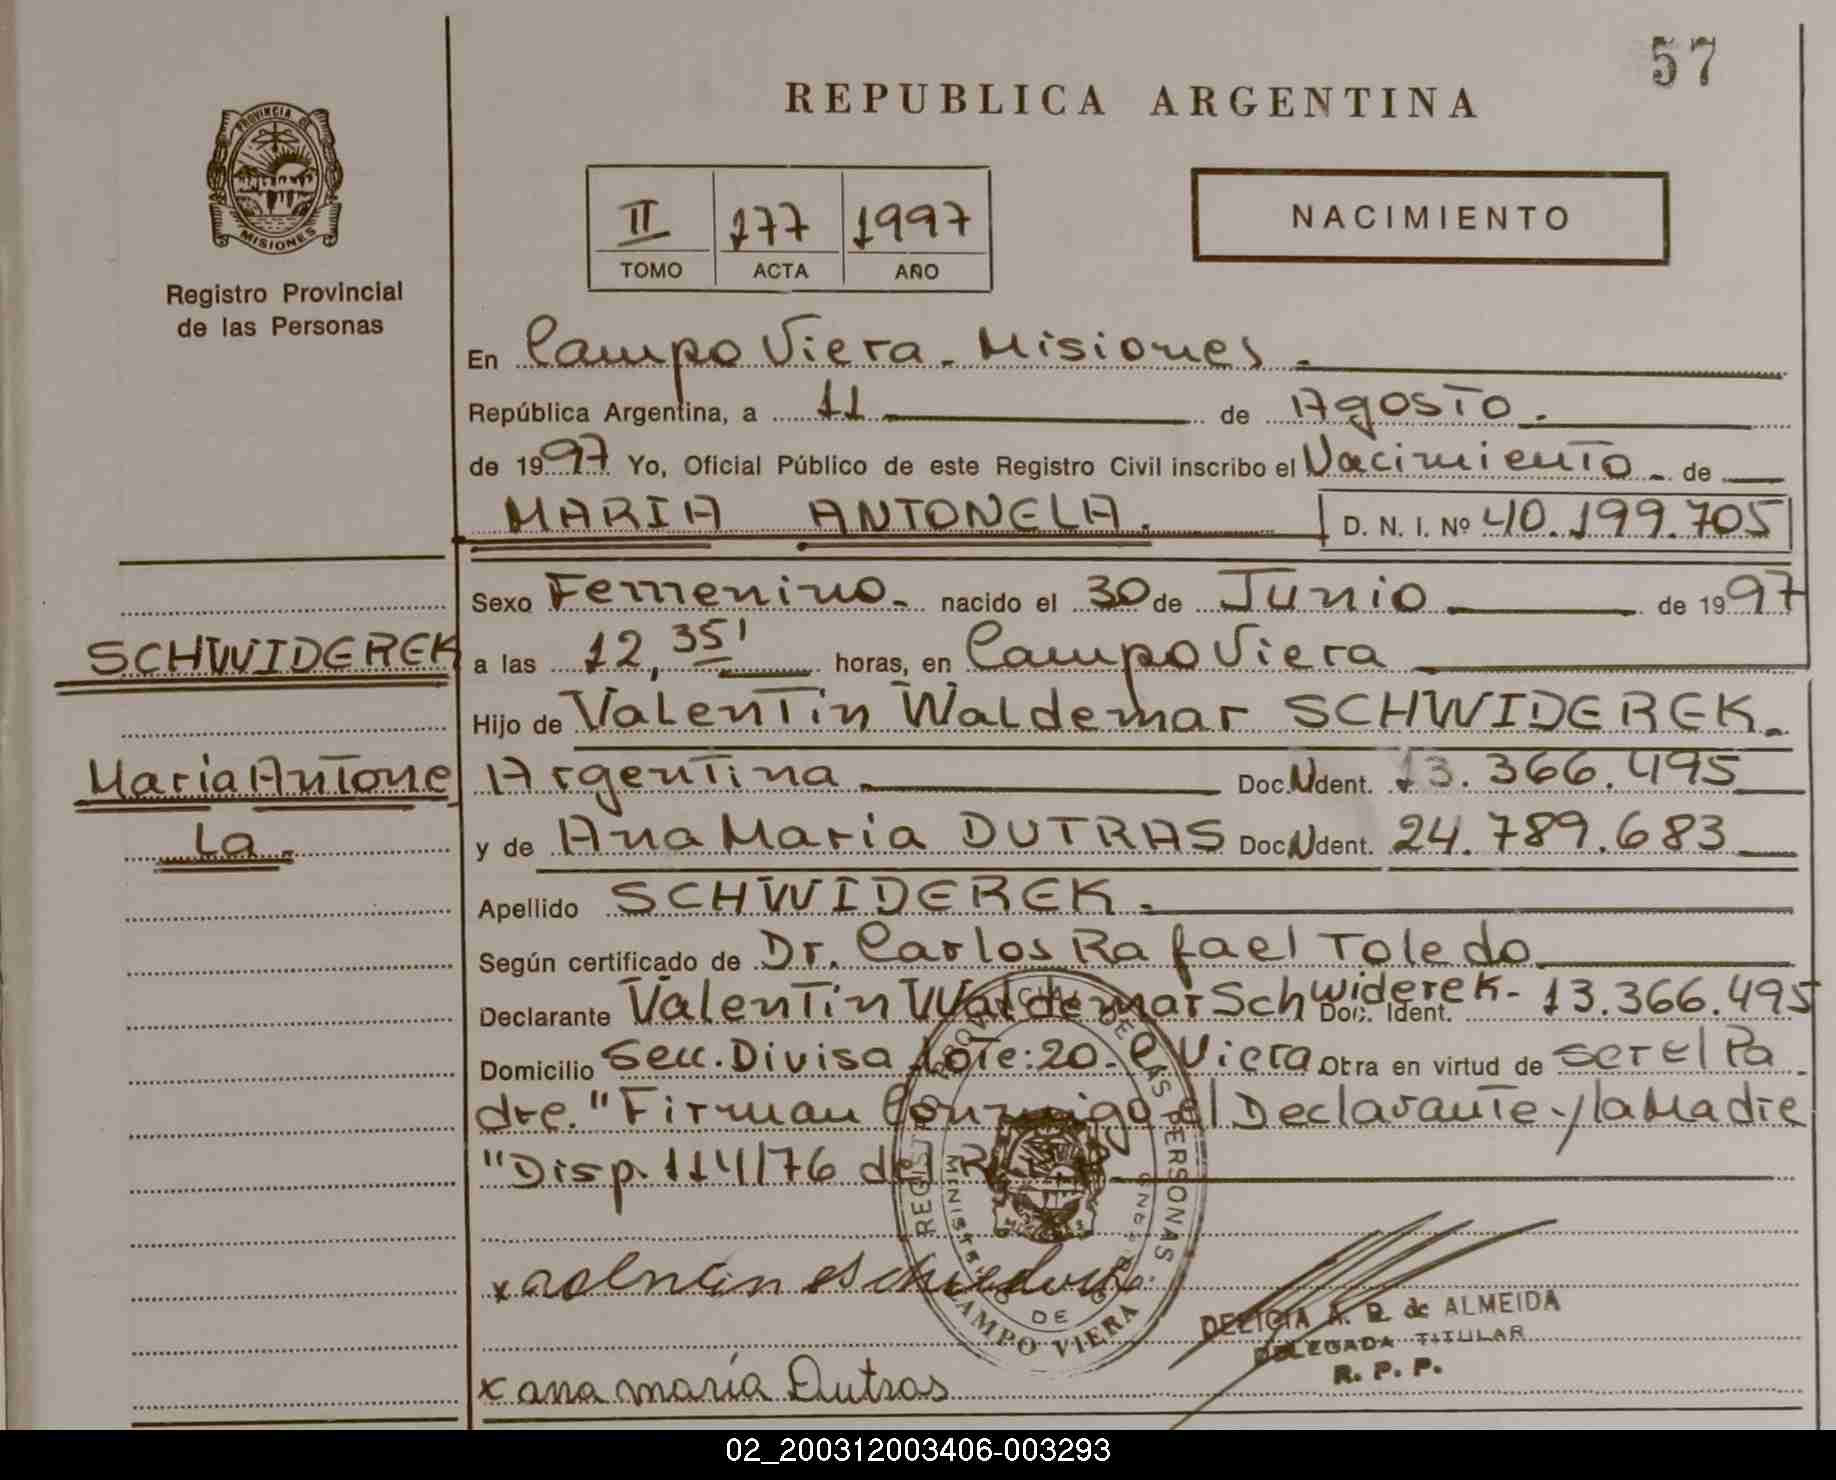 57
REPUBLICA ARGENTINA
PROVINCIA DE
MISIONES
Registro Provincial
de las Personas
II 177 1997
TOMO ACTA AÑO
NACIMIENTO
En Campo Viera - Misiones.
República Argentina, a 11 de Agosto.
de 1997 Yo, Oficial Público de este Registro Civil inscribo el Nacimiento - de
MARIA ANTONELA. D. N. I. Nº 40.199.705
Sexo Femenino - nacido el 30 de Junio de 1997
SCHWIDEREK
a las 12,35' horas, en Campo Viera
Hijo de Valentin Waldemar SCHWIDEREK.
Maria Antone
la.
Argentina Doc. N Ident. 13.366.495
y de Ana Maria DUTRAS Doc N Ident. 24.789.683
Apellido SCHWIDEREK.
Según certificado de Dr. Carlos Rafael Toledo
Declarante Valentin Waldemar Schwiderek - Doc. Ident. 13.366.495
Domicilio Secc. Divisa Lote: 20 - C. Viera Obra en virtud de ser el Pa
dre. "Firman Conmigo el Declarante y la Madre
"Disp. 114/76 del
REGISTRO PROVINCIAL DE LAS PERSONAS
MINISTERIO DE
CAMPO VIERA
x ana maria Dutras
DELICIA A. R. de ALMEIDA
DELEGADA TITULAR
R. P. P.
02_200312003406-003293